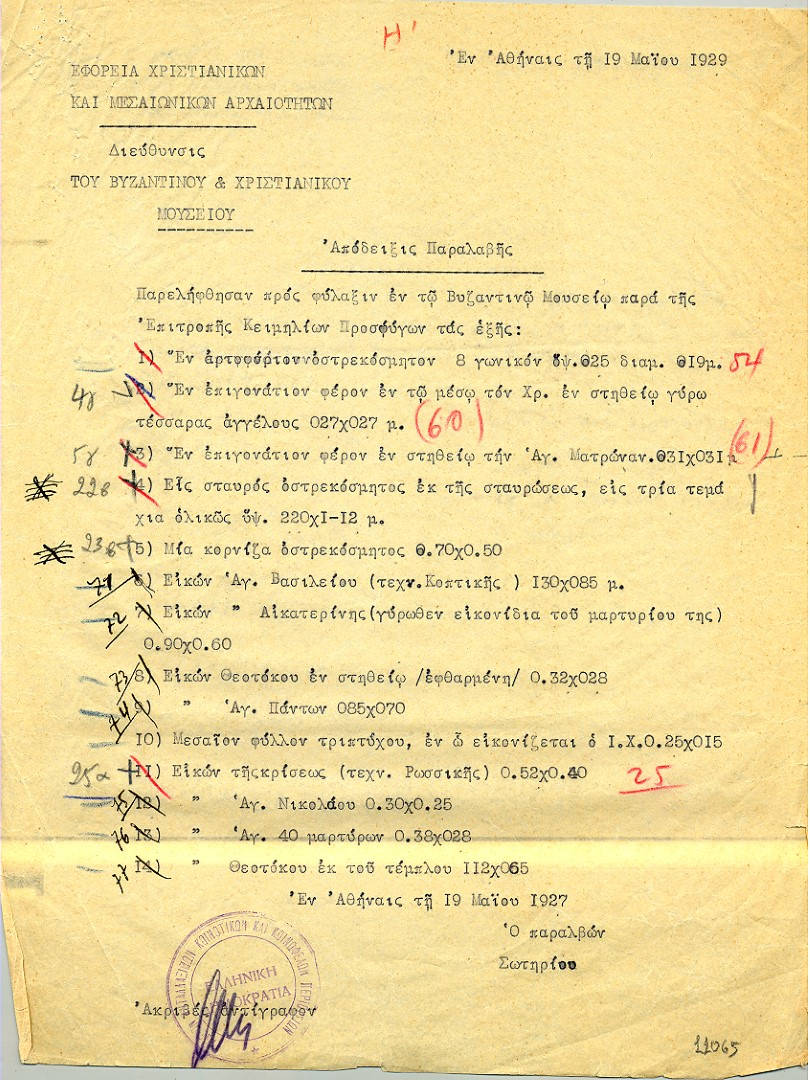 Η'
Ἐν Ἀθήναις τῇ 19 Μαΐου 1929
ΕΦΟΡΕΙΑ ΧΡΙΣΤΙΑΝΙΚΩΝ
ΚΑΙ ΜΕΣΑΙΩΝΙΚΩΝ ΑΡΧΑΙΟΤΗΤΩΝ
Διεύθυνσις
ΤΟΥ ΒΥΖΑΝΤΙΝΟΥ & ΧΡΙΣΤΙΑΝΙΚΟΥ
ΜΟΥΣΕΙΟΥ
Ἀπόδειξις Παραλαβῆς
Παρελήφθησαν πρός φύλαξιν ἐν τῷ Βυζαντινῷ Μουσείῳ παρά τῆς
Ἐπιτροπῆς Κειμηλίων Προσφύγων τάς ἑξῆς:
1) Ἕν ἀρτοφόριον ὀστρεκόσμητον 8 γωνικόν ὕψ.025 διαμ. 019μ. 54
4γ 2) Ἕν ἐπιγονάτιον φέρον ἐν τῷ μέσῳ τόν Χρ. ἐν στηθείῳ γύρω
τέσσαρας ἀγγέλους 027χ027 μ. (60)
5γ 3) Ἕν ἐπιγονάτιον φέρον ἐν στηθείῳ τήν Ἁγ. Ματρώναν.031χ031μ (61)
22β 4) Εἷς σταυρός ὀστρεκόσμητος ἐκ τῆς σταυρώσεως, εἰς τρία τεμά
χια ὁλικῶς ὕψ. 220χ1-12 μ.
23β 5) Μία κορνίζα ὀστρεκόσμητος 0.70χ0.50
71 6) Εἰκών Ἁγ. Βασιλείου (τεχν.Κοπτικῆς ) 130χ085 μ.
72 7) Εἰκών " Αἰκατερίνης(γύρωθεν εἰκονίδια τοῦ μαρτυρίου της)
0.90χ0.60
73 8) Εἰκών Θεοτόκου ἐν στηθείῳ /ἐφθαρμένη/ 0.32χ028
74 9) " Ἁγ. Πάντων 085χ070
10) Μεσαῖον φύλλον τριπτύχου, ἐν ὧ εἰκονίζεται ὁ Ι.Χ.0.25χ015
25α 11) Εἰκών τῆςκρίσεως (τεχν. Ρωσσικῆς) 0.52χ0.40 25
75 12) " Ἁγ. Νικολάου 0.30χ0.25
76 13) " Ἁγ. 40 μαρτύρων 0.38χ028
77 14) " Θεοτόκου ἐκ τοῦ τέμπλου 112χ065
Ἐν Ἀθήναις τῇ 19 Μαΐου 1927
Ὁ παραλβών
Σωτηρίου
ΕΛΛΗΝΙΚΗ
ΔΗΜΟΚΡΑΤΙΑ
Ἀκριβές ἀντίγραφον
11065